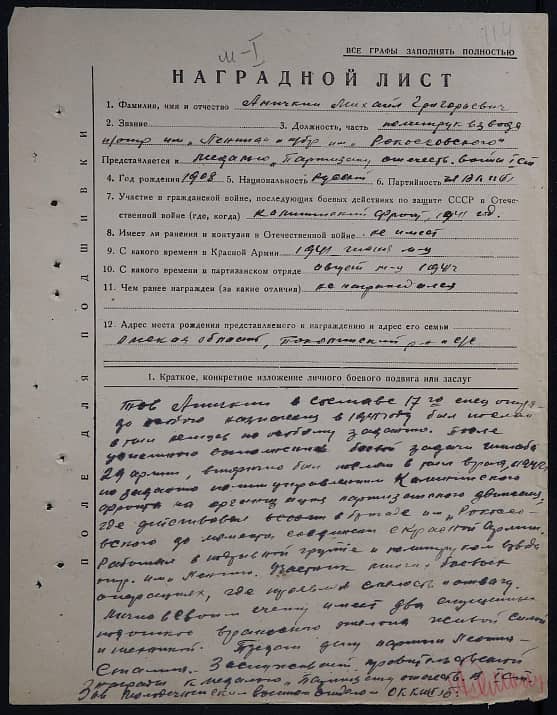 114
М-I
ВСЕ ГРАФЫ ЗАПОЛНЯТЬ ПОЛНОСТЬЮ
НАГРАДНОЙ ЛИСТ
1. Фамилия, имя и отчество Аничкин Михаил Григорьевич
2. Звание 3. Должность, часть политрук взвода
п/отр им „Ленина" п/бр им „Рокоссовского"
Представляется к медалью „Партизану отечеств. войны I ст
4. Год рождения 1908 5. Национальность русский 6. Партийность чл ВКП(б)
7. Участие в гражданской войне, последующих боевых действиях по защите СССР и Отече-
ственной войне (где, когда) Калининский фронт, 1941 год.
8. Имеет ли ранения и контузии в Отечественной войне не имеет
9. С какого времени в Красной Армии 1941 июня м-ц
10. С какого времени в партизанском отряде август м-ц 1941
11. Чем ранее награжден (за какие отличия) не награждался
12. Адрес места рождения представляемого к награждению и адрес его семьи
Омская область, р-н с/с
1. Краткое, конкретное изложение личного боевого подвига или заслуг
Тов Аничкин в составе 17го спец отря-
да особого назначения в 1941 году был послан
в тыл немцев по особому заданию. После
выполнения боевой задачи штаба
29 армии, вторично был послан в тыл врага,
по заданию Калининского
фронта на организацию партизанского движения,
где действовал в бригаде им „Рокоссо-
вского до момента соединения с Красной Армии.
Работал в подрывной группе и политруком взвода
отр. им Ленина. Участник многих боевых
операциях, где проявлял смелость и отвагу.
Лично в своем счету имеет два спущенных
вражеских эшелона с живой силой
и техникой. Предан делу партии Ленина-
Сталина. Заслуживает правительственной
награды к медалью „Партизану отечеств. в. I ст.
Зав военным отделом ОК КП(б)Б
ПОЛЕ ДЛЯ ПОДШИВКИ